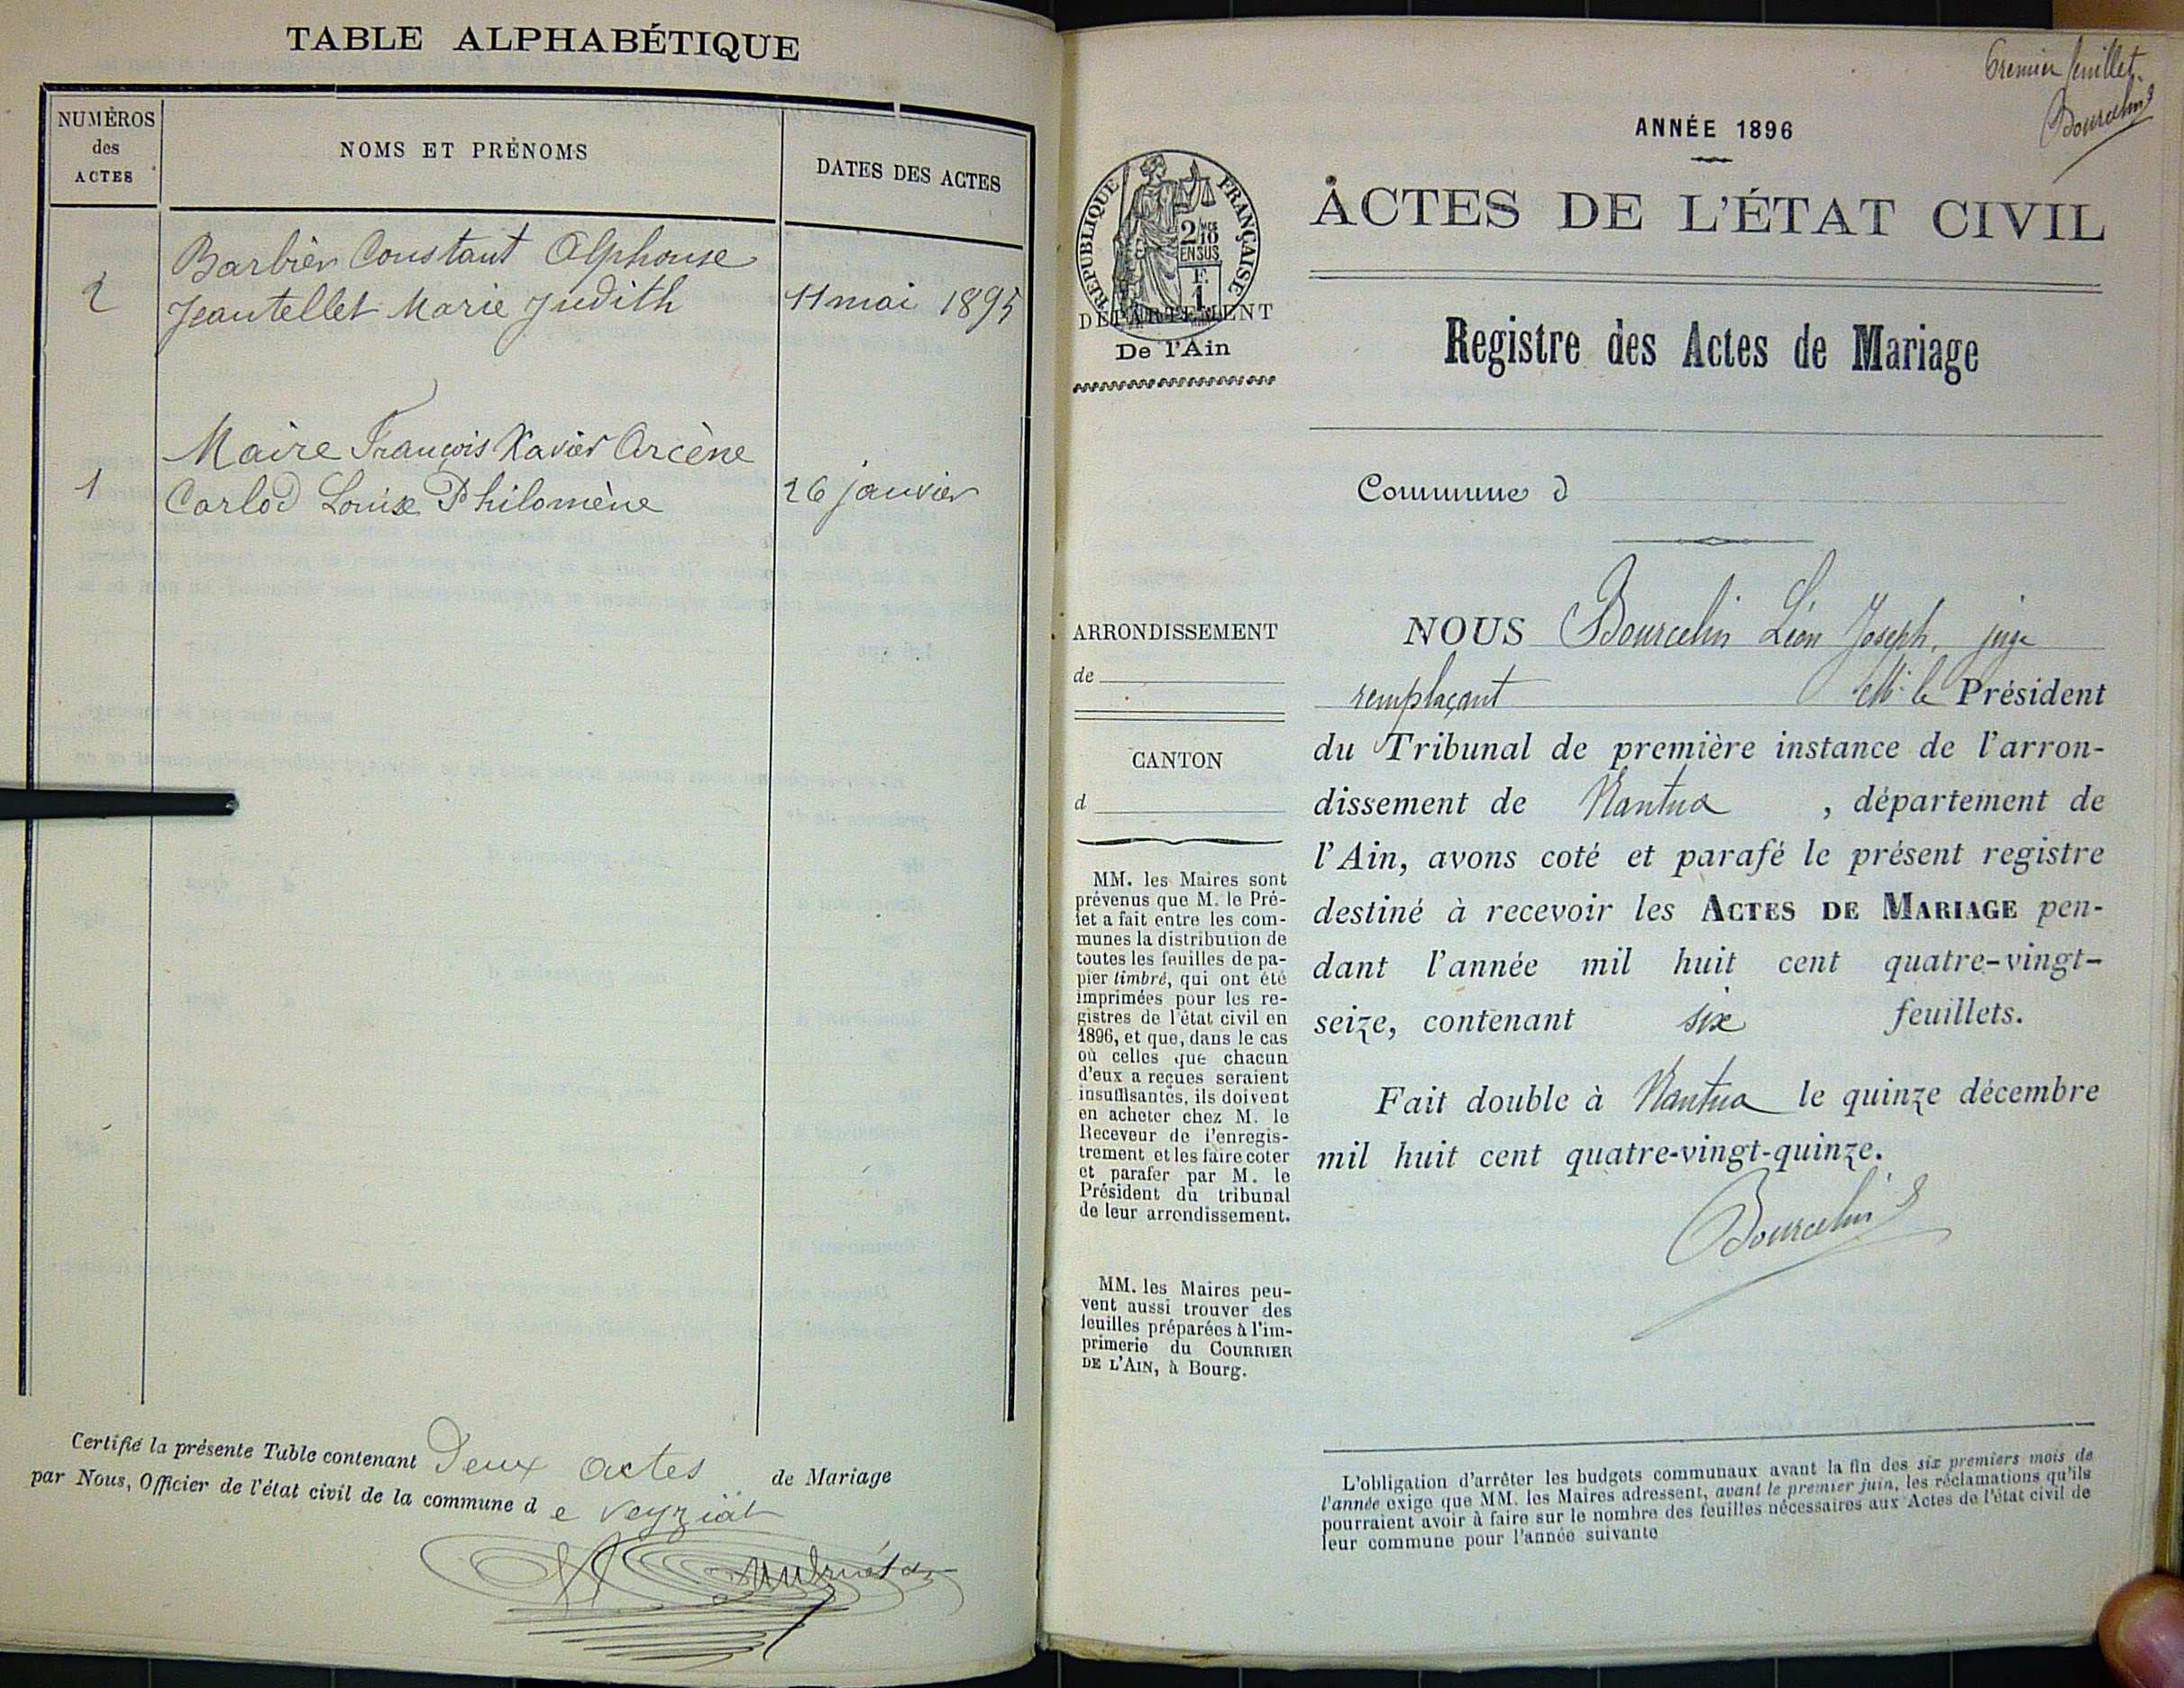 TABLE ALPHABÉTIQUE
NUMÉROS
des
ACTES
NOMS ET PRÉNOMS
DATES DES ACTES
Barbier Constant Alphonse
2 Jeantellet Marie Judith 11 mai 1895
Maire François Xavier Arcène
1 Carlod Louise Philomène 26 janvier
Certifié la présente Table contenant Deux actes de Mariage
par Nous, Officier de l'état civil de la commune d e Veyziat
Premier feuillet.
Bourcelin
ANNÉE 1896
ACTES DE L'ÉTAT CIVIL
RÉPUBLIQUE FRANÇAISE
2/10
EN SUS
F.
1
DÉPARTEMENT
De l'Ain
Registre des Actes de Mariage
Commune d
ARRONDISSEMENT
de
CANTON
d
MM. les Maires sont
prévenus que M. le Pré-
fet a fait entre les com-
munes la distribution de
toutes les feuilles de pa-
pier timbré, qui ont été
imprimées pour les re-
gistres de l'état civil en
1896, et que, dans le cas
où celles que chacun
d'eux a reçues seraient
insuffisantes, ils doivent
en acheter chez M. le
Receveur de l'enregis-
trement et les faire coter
et parafer par M. le
Président du tribunal
de leur arrondissement.
MM. les Maires peu-
vent aussi trouver des
feuilles préparées à l'im-
primerie du COURRIER
DE L'AIN, à Bourg.
NOUS Bourcelin Léon Joseph, juge
remplaçant M. le Président
du Tribunal de première instance de l'arron-
dissement de Nantua , département de
l'Ain, avons coté et parafé le présent registre
destiné à recevoir les ACTES DE MARIAGE pen-
dant l'année mil huit cent quatre-vingt-
seize, contenant six feuillets.
Fait double à Nantua le quinze décembre
mil huit cent quatre-vingt-quinze.
Bourcelin
L'obligation d'arrêter les budgets communaux avant la fin des six premiers mois de
l'année exige que MM. les Maires adressent, avant le premier juin, les réclamations qu'ils
pourraient avoir à faire sur le nombre des feuilles nécessaires aux Actes de l'état civil de
leur commune pour l'année suivante